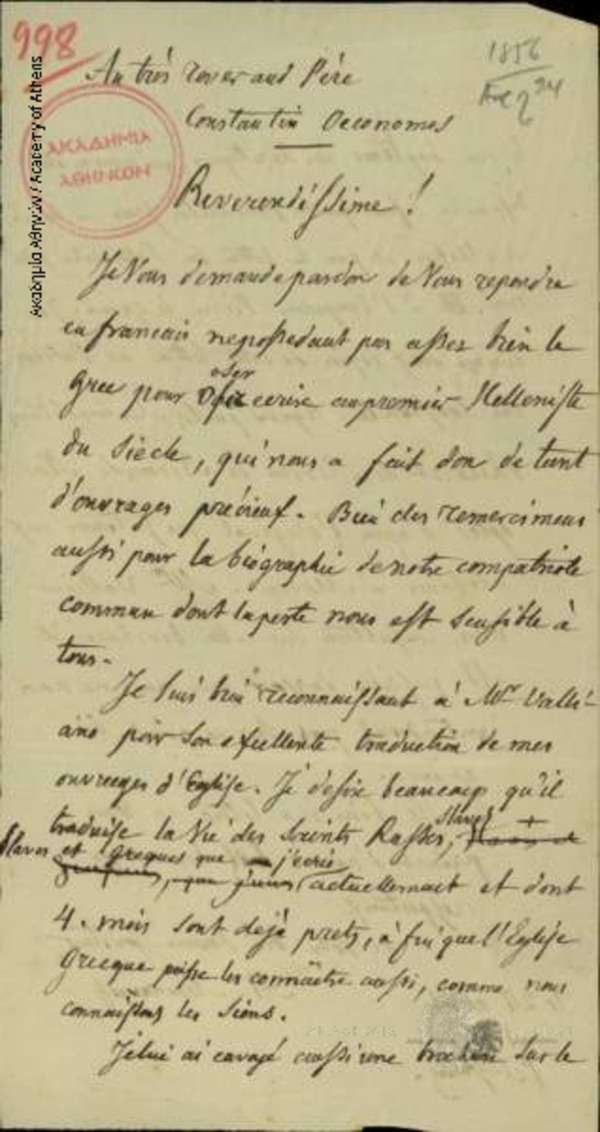 998
1856
Au très reverand Père
Constantin Oeconomos
ΑΚΑΔΗΜΙΑ
ΑΘΗΝΩΝ
Ακαδημία Αθηνών / Academy of Athens
Reverendissime !
Je Vous demande pardon de Vous repondre
en francais ne possedant pas assez bien le
Grec pour oser ecrire au premier Helleniste
du Siecle, qui nous a fait don de tant
d'ouvrages précieux. Bien des remercimens
aussi pour la biographie de notre compatriote
commun dont la perte nous est sensible à
tous.
Je suis bien reconnaissant à Mr Valli-
ano pour son excellente traduction de mes
ouvrages d'Eglise. Je desire beaucoup qu'il
traduise la Vie des Saints Russes, Slaves +
Slaves et Greques que j'ecris
actuellement et dont
4. mois sont dejà prets, à fin que l'Eglise
Grecque puisse les connaître aussi, comme nous
connaissons les Siens.
Je lui ai envoyé aussi une brochure sur le